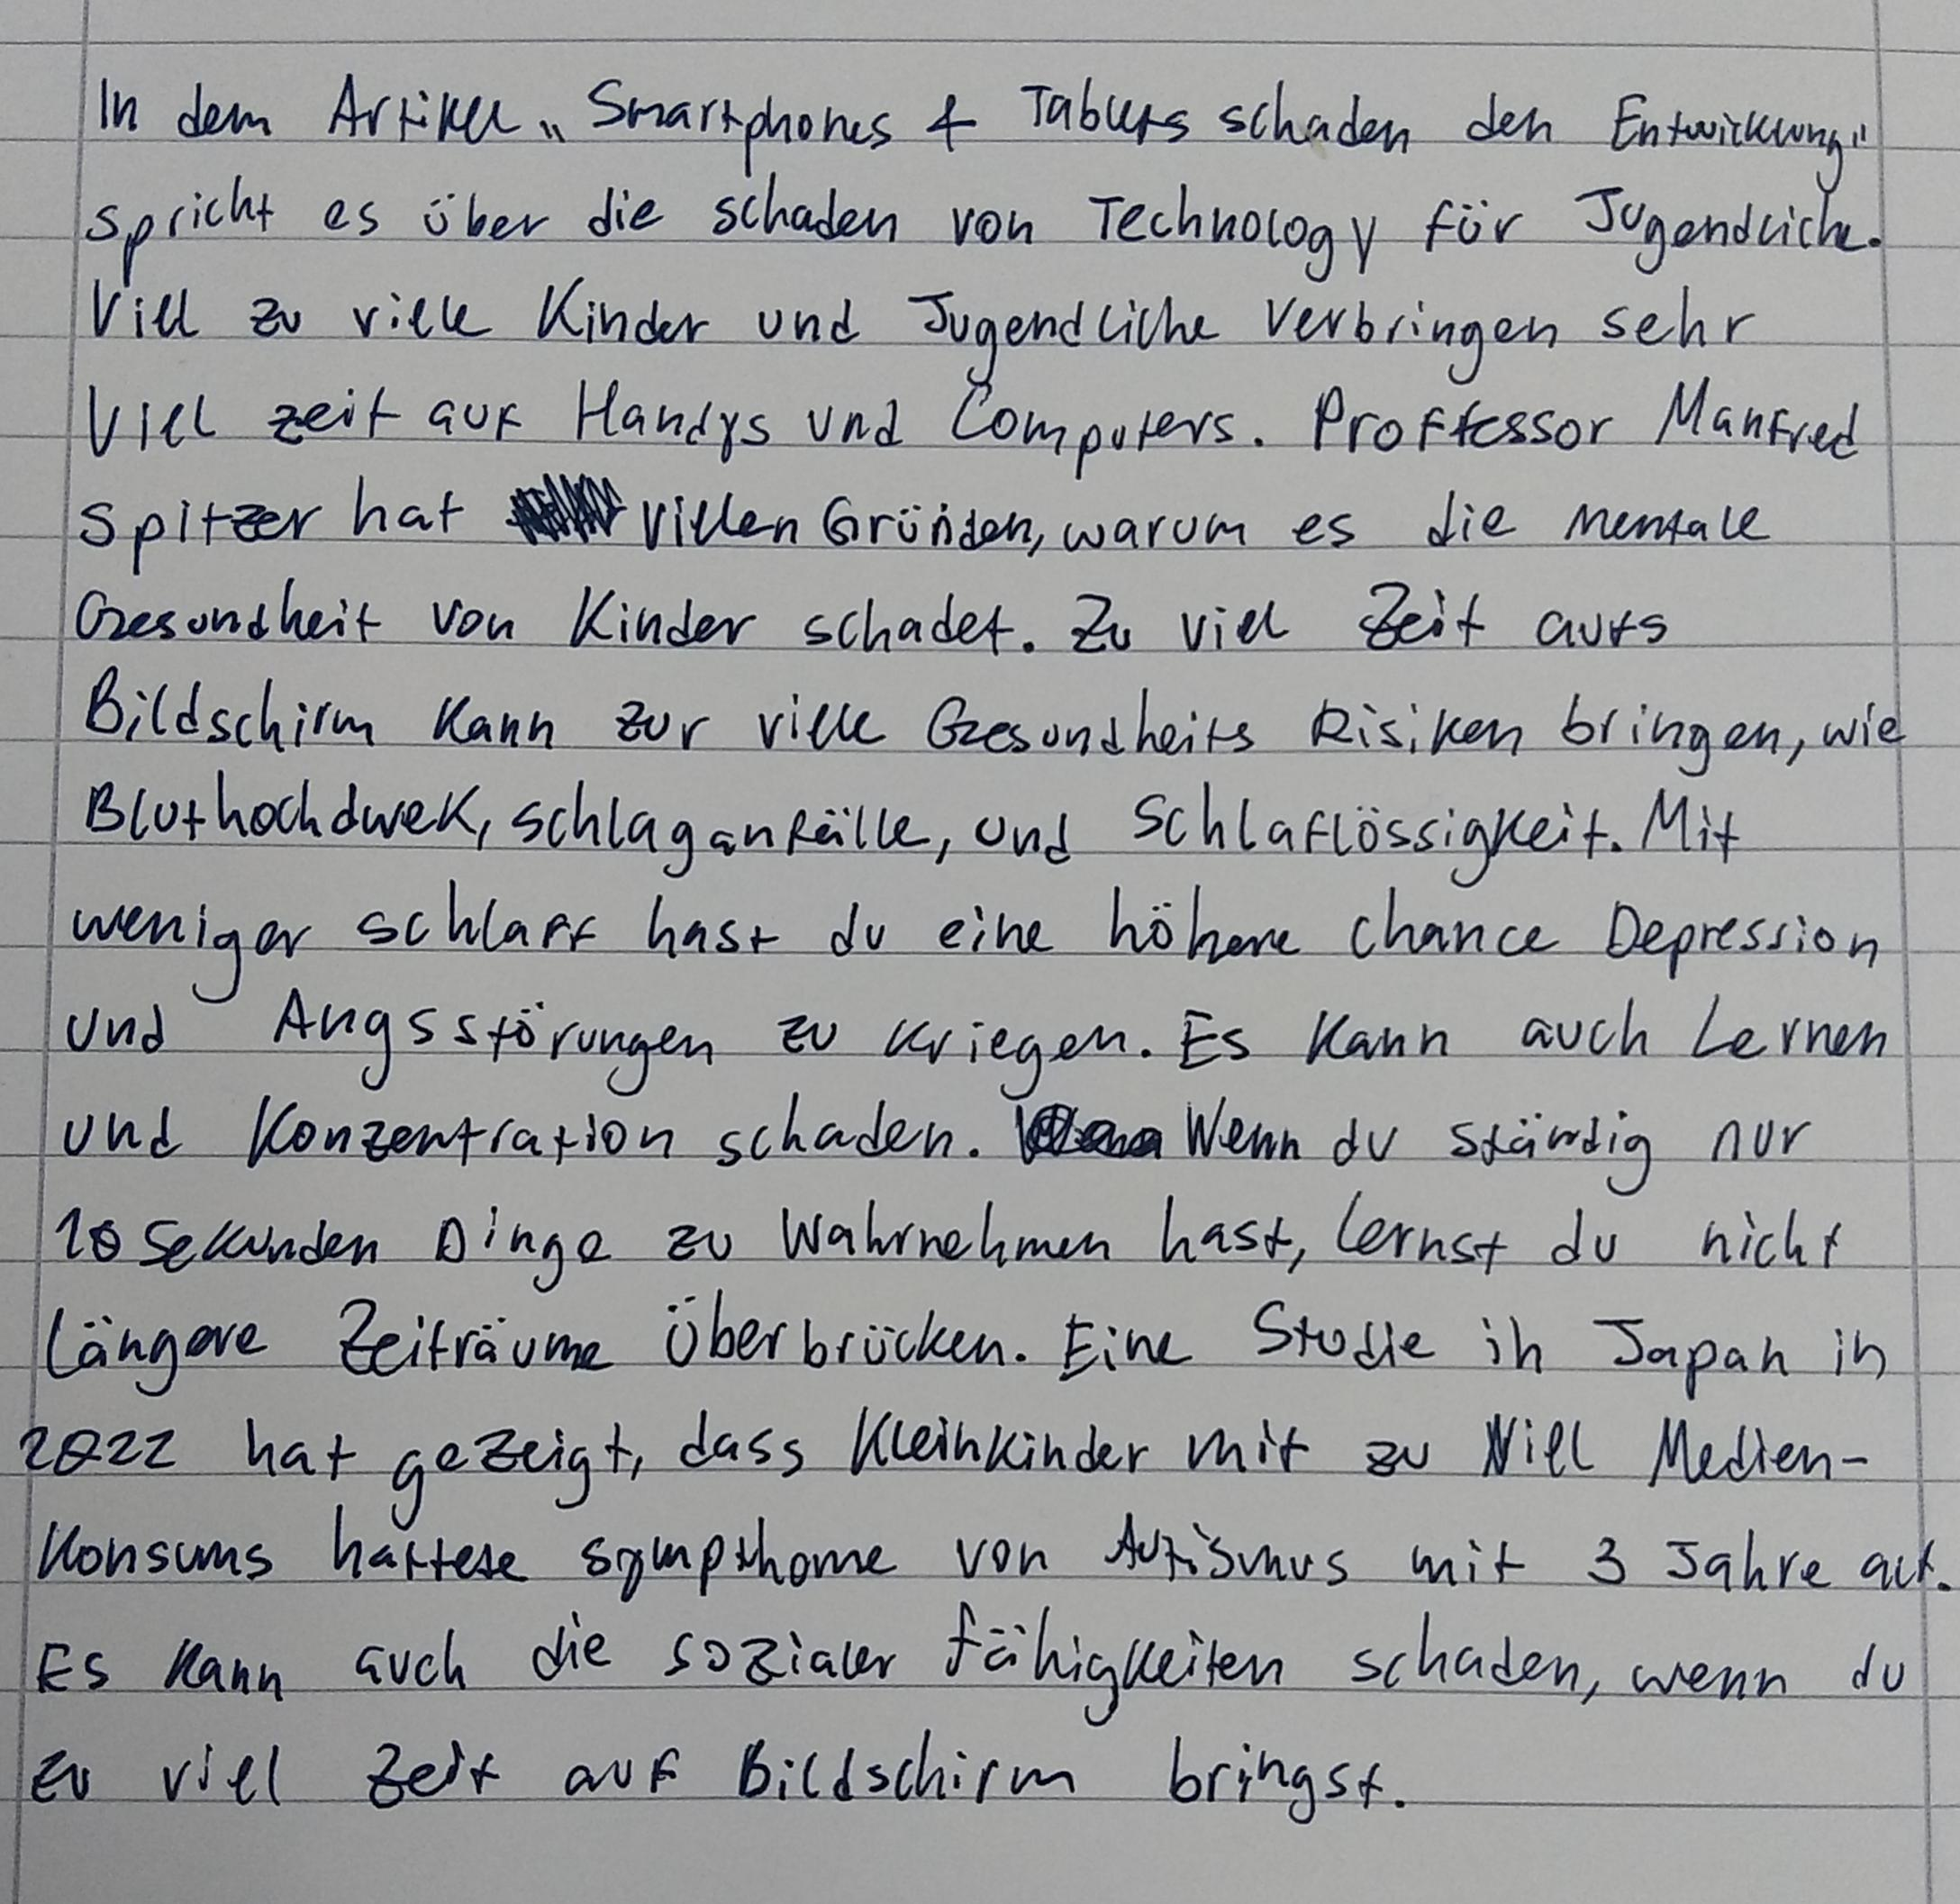 In dem Artikel „Smartphones & Tablets schaden den Entwicklung"
spricht es über die schaden von Technology für Jugendliche.
Viel zu viele Kinder und Jugendliche verbringen sehr
Viel zeit auf Handys und Computers. Proffessor Manfred
Spitzer hat viellen Gründen, warum es die mentale
Gesundheit von Kinder schadet. Zu viel Zeit aufs
Bildschirm kann zur viele Gesundheits Risiken bringen, wie
Bluthochdruck, schlaganfälle, und Schlaflössigkeit. Mit
weniger schlaff hast du eine höhere chance Depression
und Angsstörungen zu kriegen. Es kann auch Lernen
und Konzentration schaden. Wenn du ständig nur
10 Sekunden Dinge zu Wahrnehmen hast, lernst du nicht
längere Zeiträume Überbrücken. Eine Studie in Japan in
2022 hat gezeigt, dass Kleinkinder mit zu Viel Medien-
Konsums hattete sympthome von Autismus mit 3 Jahre alt.
Es kann auch die sozialer fähigkeiten schaden, wenn du
zu viel Zeit auf Bildschirm bringst.